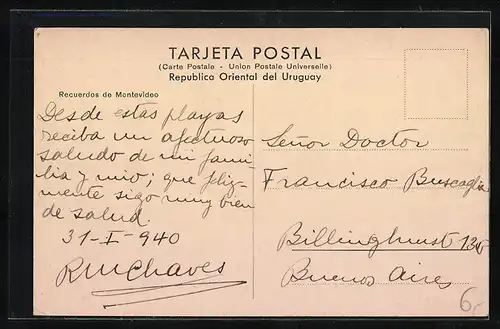 TARJETA POSTAL
(Carte Postale - Union Postale Universelle)
Republica Oriental del Uruguay
Recuerdos de Montevideo
Desde estas playas
reciba un afectuoso
saludo de mi fami
lia y mio; que feliz-
mente sigo muy bien
de salud.
31-I-940
RMChaves
Señor Doctor
Francisco Buscaglia
Billinghurst
Buenos Aires
6,-